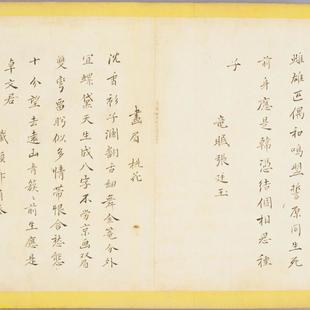 雌雄匹偶和鳴盟誓原同生死
前身應是韓憑結個相思種
子
竜眠張廷玉
畫眉 桃花
沈香衫子澜翻古細舞金篦分外
宜螺黛天生成八字不勞京画眉
雙彎留
似多情帶恨含愁態
十分望去遠山青簇〻前生應是
卓文君